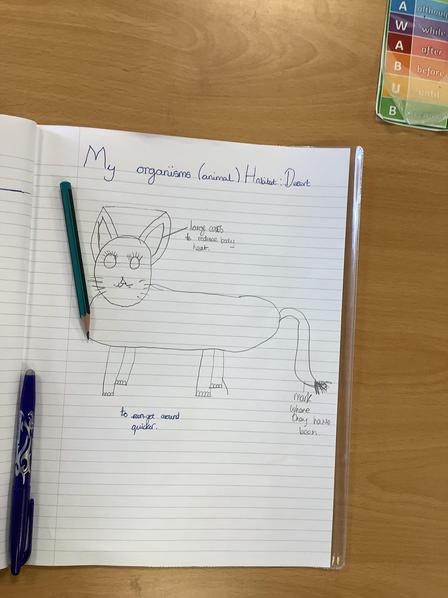 A although
W while
A after
B before
U until
B
My organisms (animal) Habitat : Desert
large ears
to reduce body
heat.
to get around
quicker.
mark
where
they have
been.